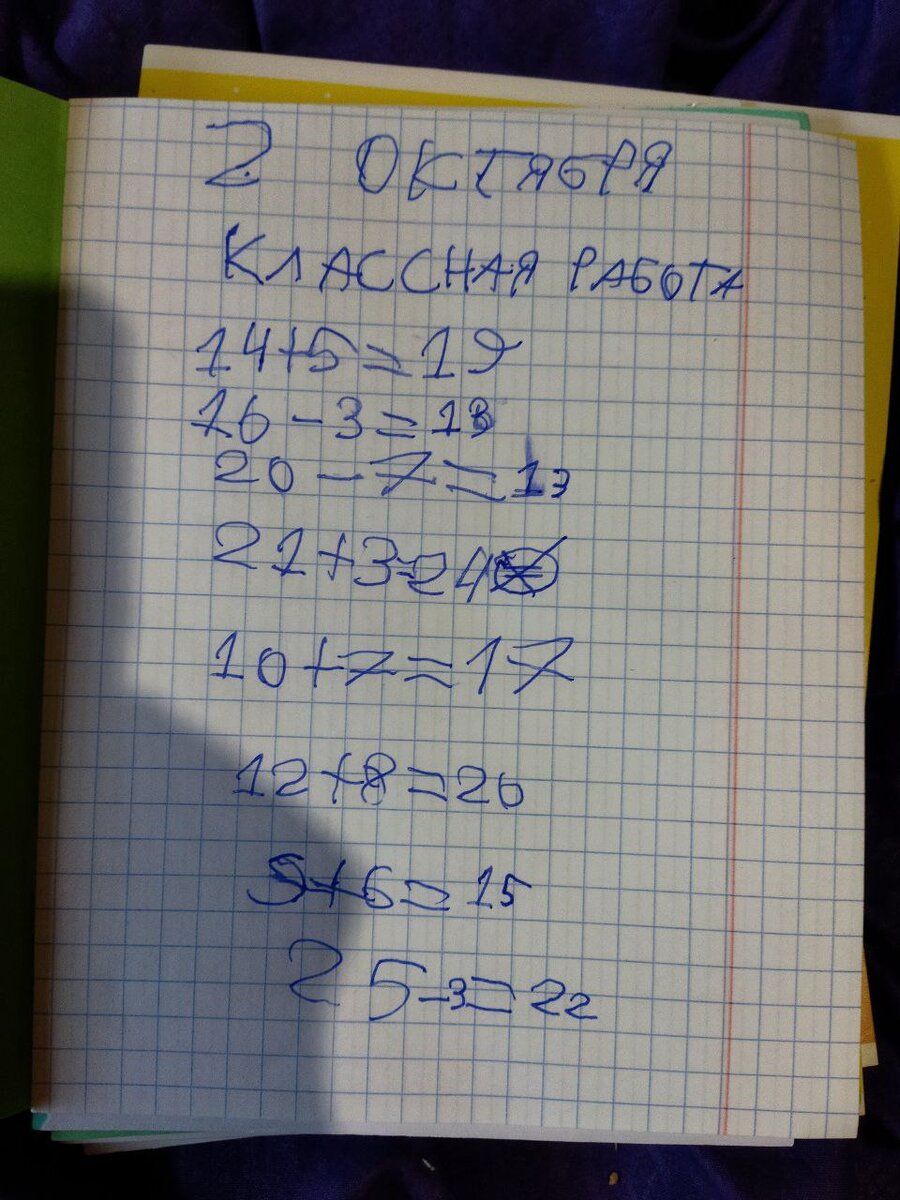 2 ОКТЯБРЯ
КЛАССНАЯ РАБОТА
14+5=19
16-3=13
20-7=13
21+3=24
10+7=17
12+8=20
9+6=15
25-3=22